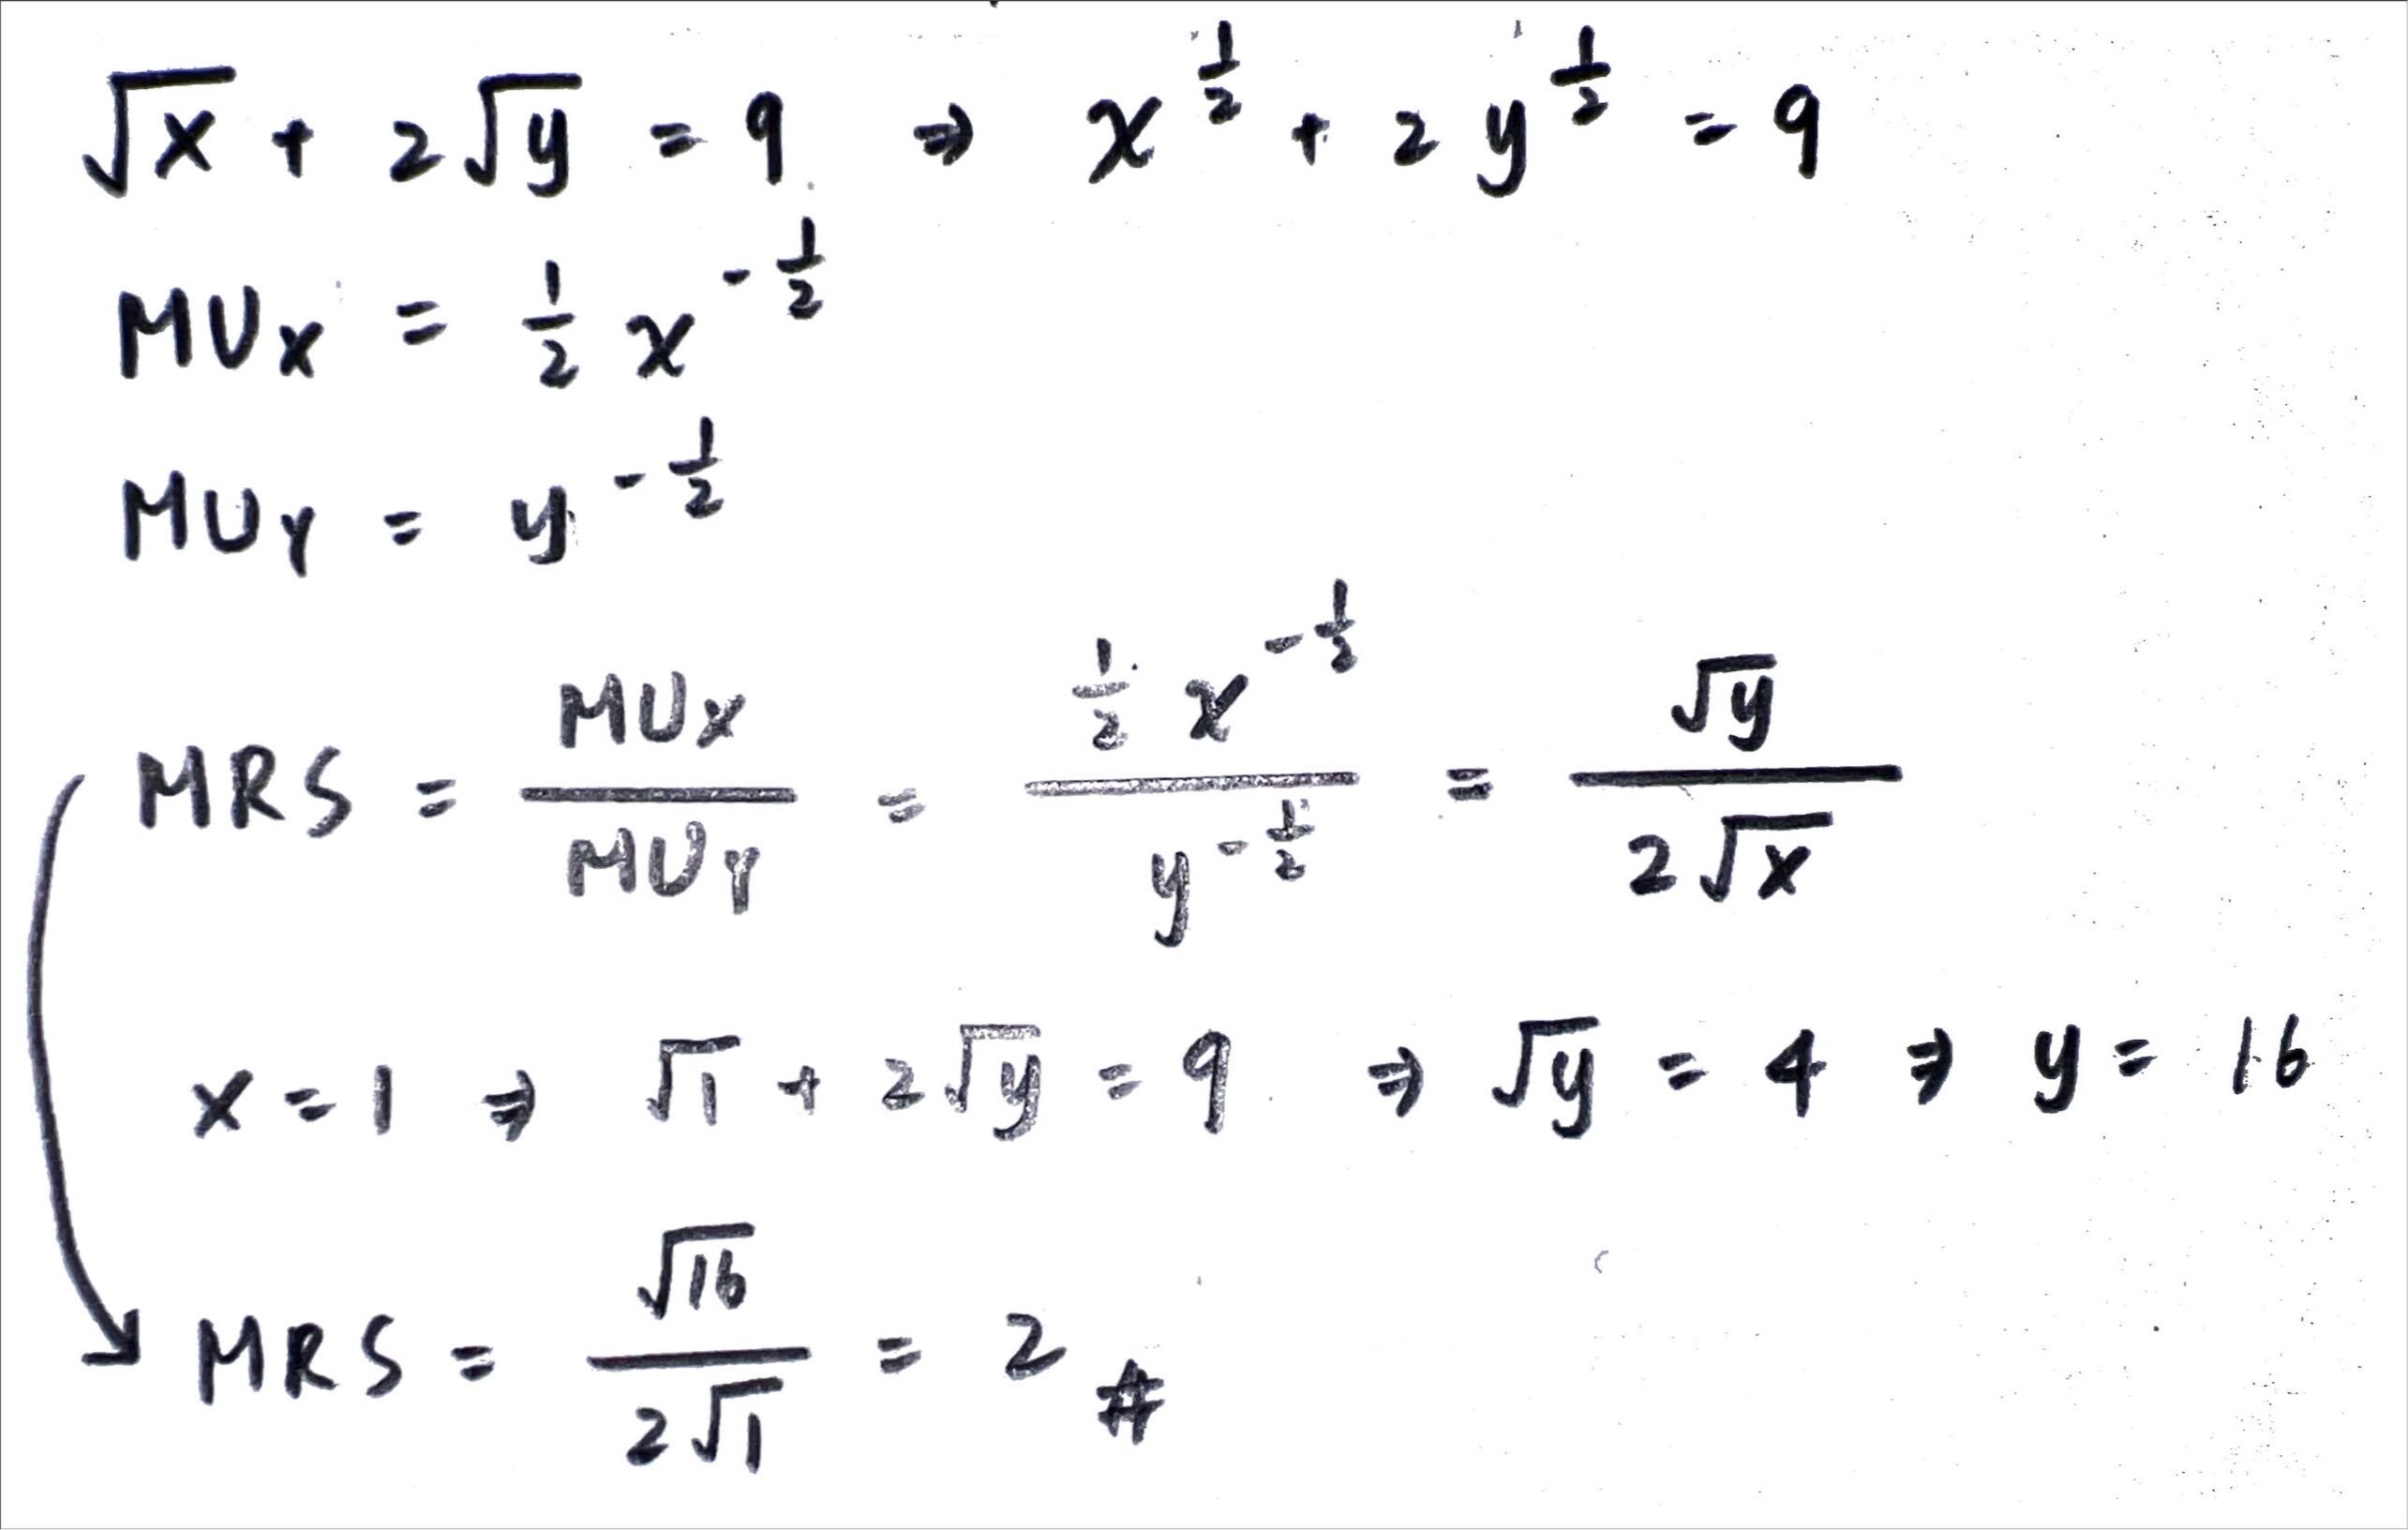 √x + 2√y = 9 ⇒ x^(1/2) + 2 y^(1/2) = 9
MUx = 1/2 x^(-1/2)
MUY = y^(-1/2)
MRS = MUx / MUY = (1/2 x^(-1/2)) / (y^(-1/2)) = √y / (2√x)
x = 1 ⇒ √1 + 2√y = 9 ⇒ √y = 4 ⇒ y = 16
MRS = √16 / (2√1) = 2 #